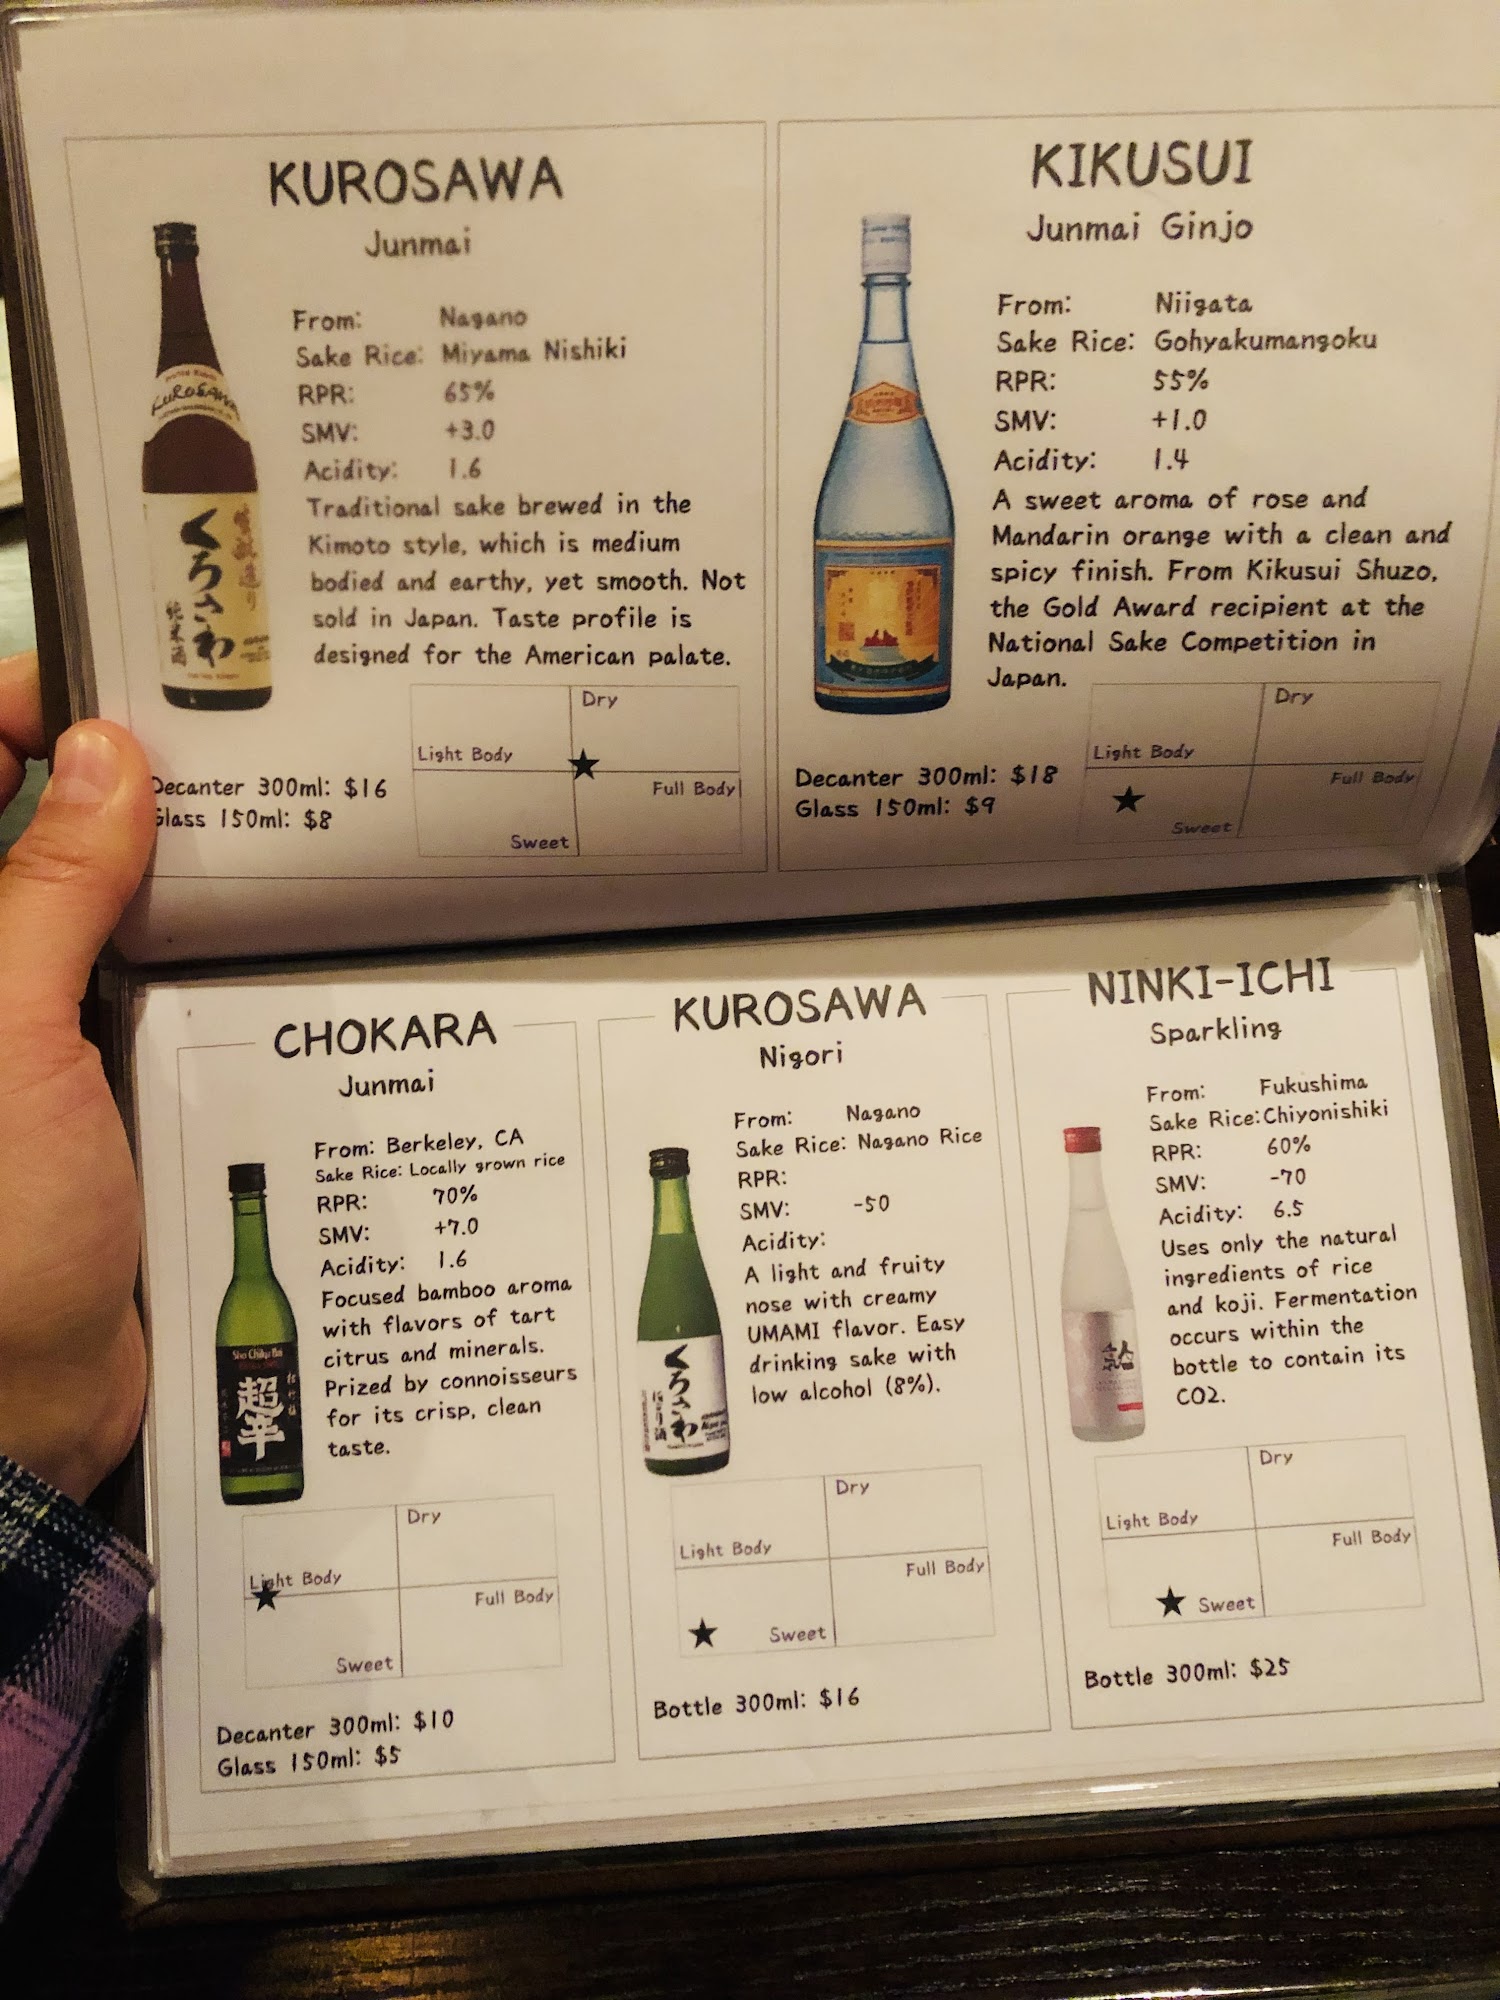 KUROSAWA
Junmai
From: Nagano
Sake Rice: Miyama Nishiki
RPR: 65%
SMV: +3.0
Acidity: 1.6
Traditional sake brewed in the
Kimoto style, which is medium
bodied and earthy, yet smooth. Not
sold in Japan. Taste profile is
designed for the American palate.
Dry
Light Body
Full Body
Sweet
Decanter 300ml: $16
Glass 150ml: $8
KUROSAWA
くろさわ
KIKUSUI
Junmai Ginjo
From: Niigata
Sake Rice: Gohyakumangoku
RPR: 55%
SMV: +1.0
Acidity: 1.4
A sweet aroma of rose and
Mandarin orange with a clean and
spicy finish. From Kikusui Shuzo,
the Gold Award recipient at the
National Sake Competition in
Japan.
Dry
Light Body
Full Body
Sweet
Decanter 300ml: $18
Glass 150ml: $9
CHOKARA
Junmai
From: Berkeley, CA
Sake Rice: Locally grown rice
RPR: 70%
SMV: +7.0
Acidity: 1.6
Focused bamboo aroma
with flavors of tart
citrus and minerals.
Prized by connoisseurs
for its crisp, clean
taste.
Sho Chiku Bai
超辛
松竹梅
Dry
Light Body
Full Body
Sweet
Decanter 300ml: $10
Glass 150ml: $5
KUROSAWA
Nigori
From: Nagano
Sake Rice: Nagano Rice
RPR:
SMV: -50
Acidity:
A light and fruity
nose with creamy
UMAMI flavor. Easy
drinking sake with
low alcohol (8%).
くろさわ
にごり酒
Dry
Light Body
Full Body
Sweet
Bottle 300ml: $16
NINKI-ICHI
Sparkling
From: Fukushima
Sake Rice: Chiyonishiki
RPR: 60%
SMV: -70
Acidity: 6.5
Uses only the natural
ingredients of rice
and koji. Fermentation
occurs within the
bottle to contain its
CO2.
Dry
Light Body
Full Body
Sweet
Bottle 300ml: $25